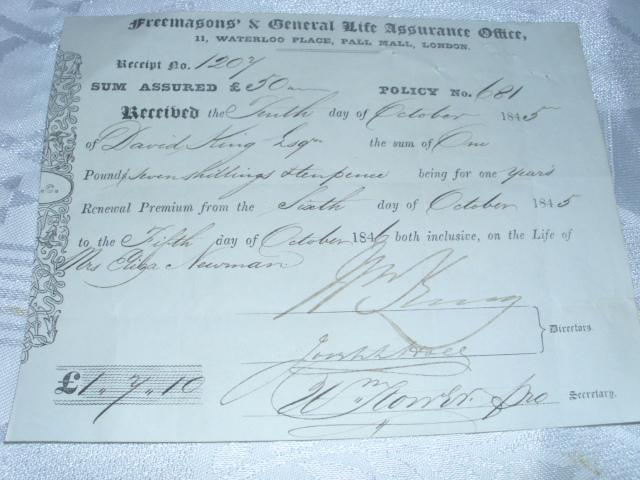 Freemasons' & General Life Assurance Office,
11, WATERLOO PLACE, PALL MALL, LONDON.
Receipt No. 1207
SUM ASSURED £ 50 POLICY No. 681
Received the Tenth day of October 1845
of David King Esqr the sum of One
Pound seven shillings & tenpence being for one year's
Renewal Premium from the Sixth day of October 1845
to the Fifth day of October 1846 both inclusive, on the Life of
Mrs Eliza Newman
Directors.
£1,, 7,, 10 Wm Secretary.